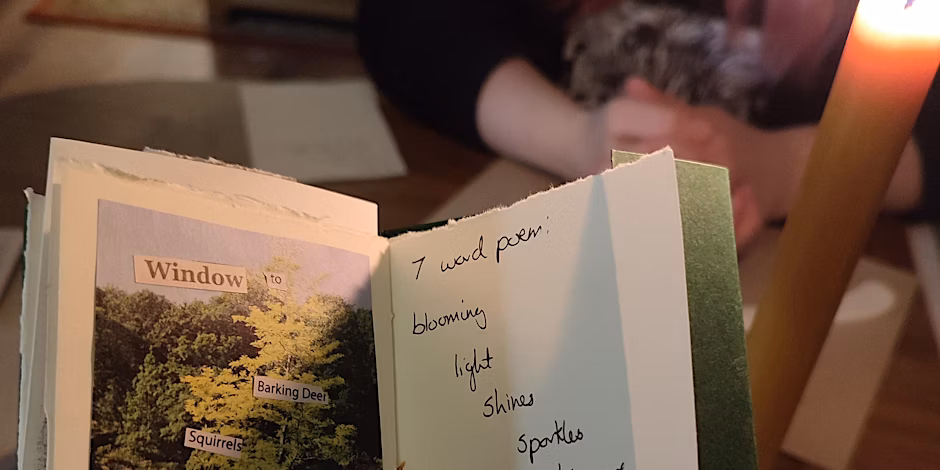 Window to
Barking Deer
Squirrels
7 word poem:
blooming
light
shines
sparkles